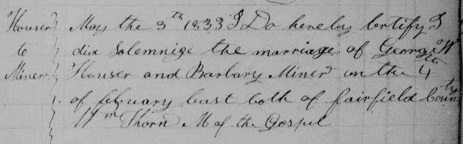 Houser May the 3th 1833 I Do hereby Certify I
to did Solemnize the marriage of George W
Miner Houser and Barbary Miner on the 4th
of february last both of fairfield County
Wm Thorn M of the Gospel